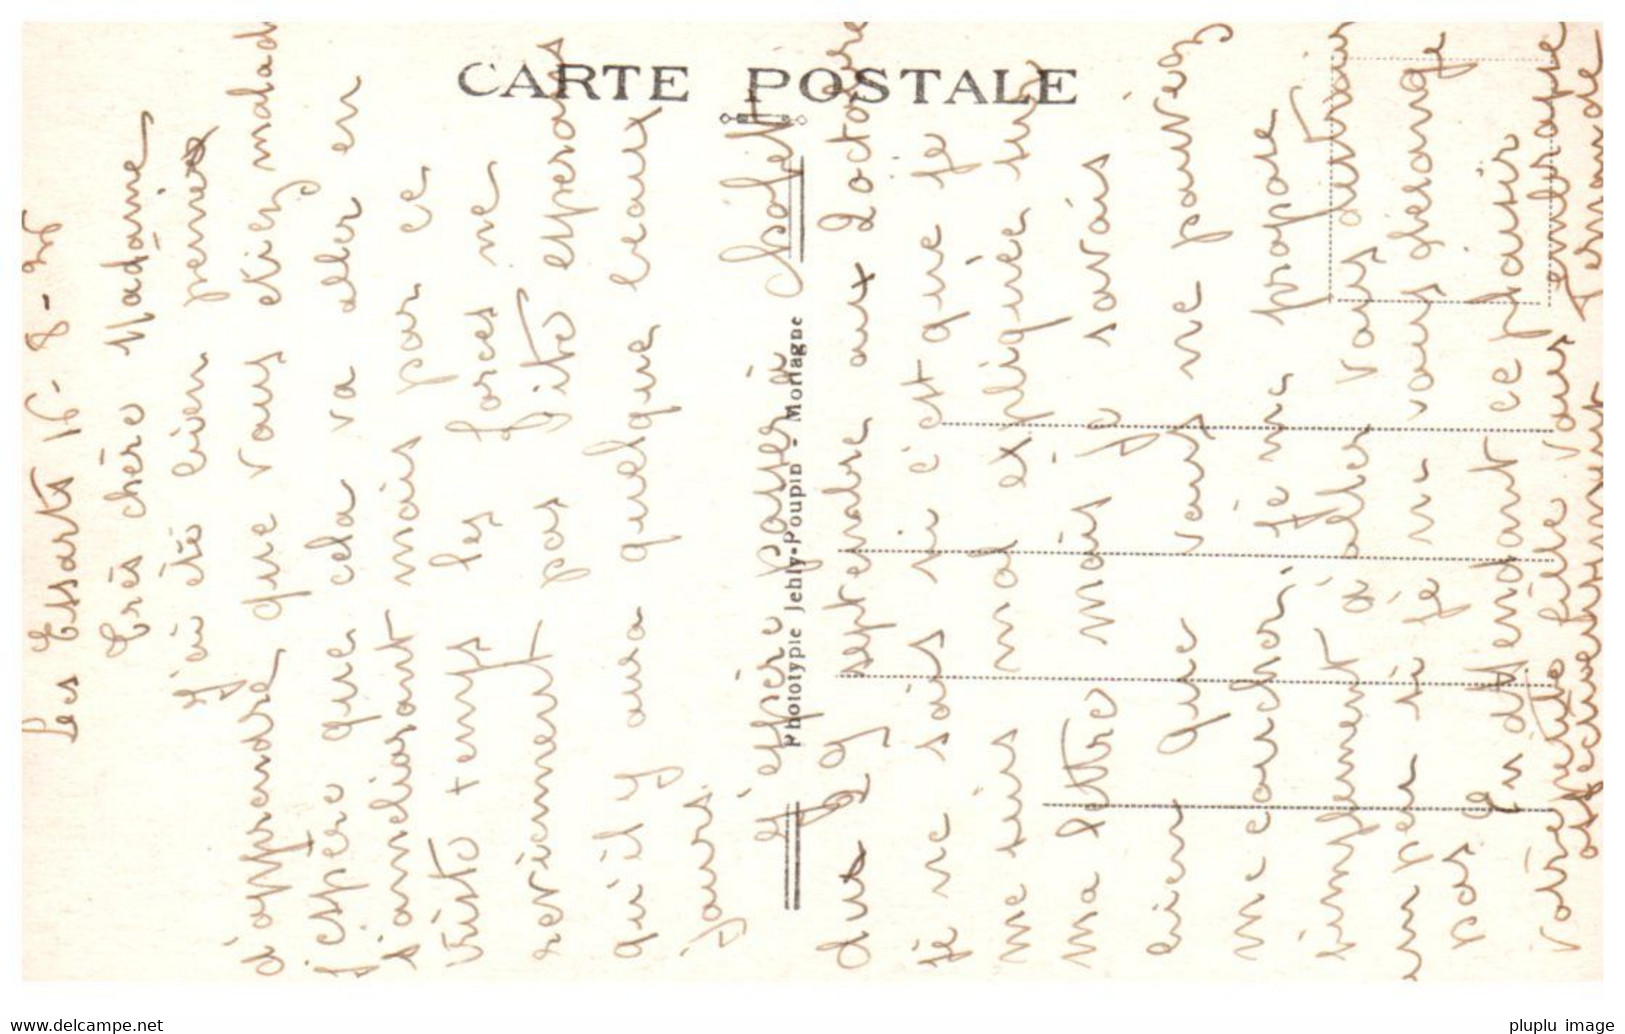 CARTE POSTALE
Phototypie Jehly-Poupin - Mortagne
Les Essarts 16-8-
Très chère Madame
J'ai été bien peinée
d'apprendre que vous étiez malad
j'espère que cela va aller en
s'améliorant mais par ce
triste temps les forces me
reviennent pas vite espérons
qu'il y aura quelque beaux
jours.
J'espère passer à Cholet
du 29 septembre aux 2 octobre
je ne sais si c'est que je
me suis mal expliquée sur
ma lettre mais je savais
bien que vous ne pouvez
me coucher. Je me propose
simplement d'aller vous
un peu si je ne vous dérange
pas En attendant ce plaisir
Votre petite fille vous embrasse
affectueusement Fernande
www.delcampe.net
pluplu image